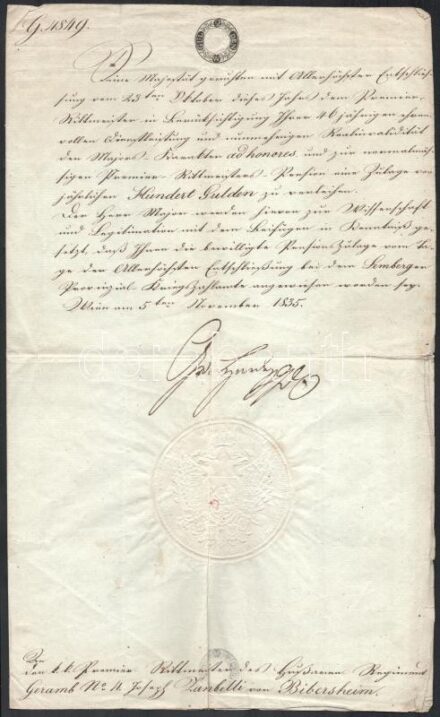 G. 4849.
Seine Majestät geruhten mit Allerhöchster Entschlie-
ßung vom 23ten Oktober dieses Jahrs dem Premier-
Rittmeister in Berücksichtigung Ihrer 46 jährigen ehren-
vollen Dienstleistung und nunmehrigen Realinvalidität
den Majors-Karakter ad honores, und zur normalmä-
ßigen Premier-Rittmeisters-Pension eine Zulage von
jährlichen Hundert Gulden zu verleihen.
Der Herr Major werden hievon zur Wissenschaft
und Legitimation mit dem Beifügen in Kenntniß ge-
setzt, daß Ihnen die bewilligte Pensions-Zulage vom Ta-
ge der Allerhöchsten Entschließung bei dem Lemberger
Provinzial-Kriegszahlamte angewiesen worden sey.
Wien am 5ten November 1835.
An
den k. k. Premier-Rittmeister des Hußaren-Regiment
Geramb No 4 Joseph Zanbelli von Bibersheim.